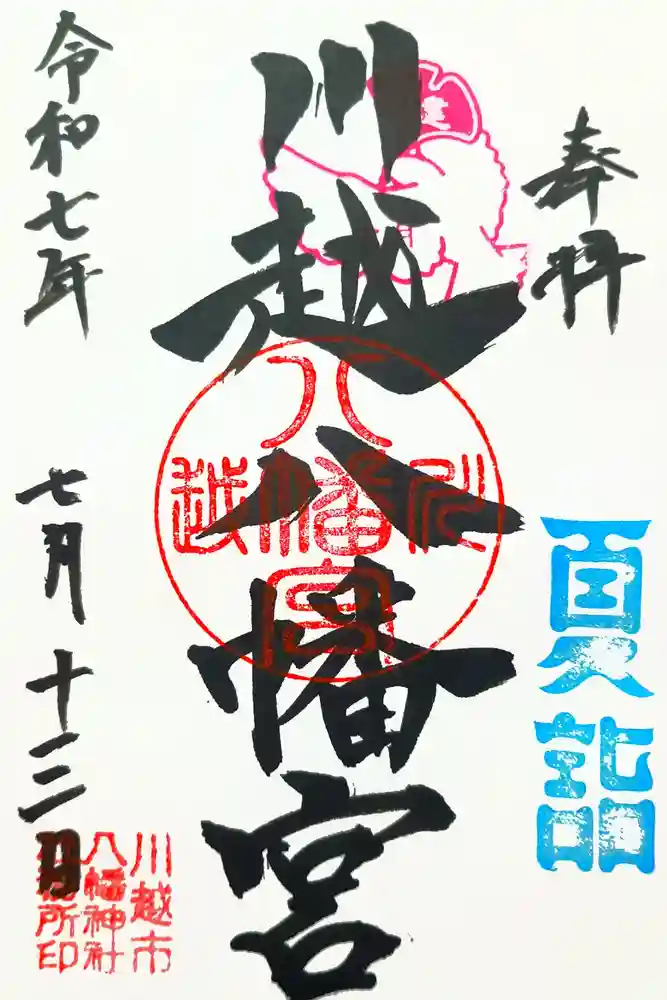 奉拝
夏詣
川越八幡宮
八幡宮
川越
川越市
八幡神社
所印
令和七年
七月十三日